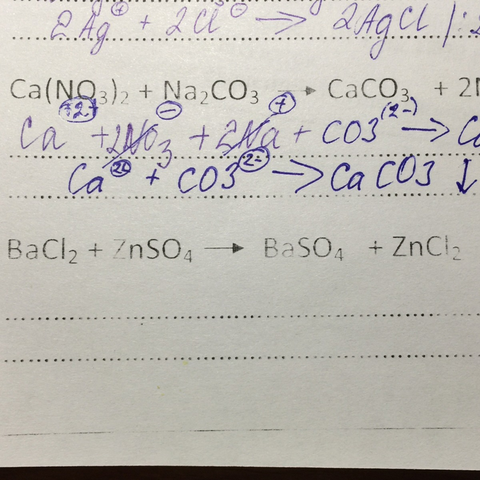 2Ag⁺ + 2Cl⁻ → 2AgCl |:2
Ca(NO₃)₂ + Na₂CO₃ → CaCO₃ + 2N
Ca²⁺ + 2NO₃⁻ + 2Na⁺ + CO3²⁻ → Ca
Ca²⁺ + CO3²⁻ → CaCO3 ↓
BaCl₂ + ZnSO₄ → BaSO₄ + ZnCl₂